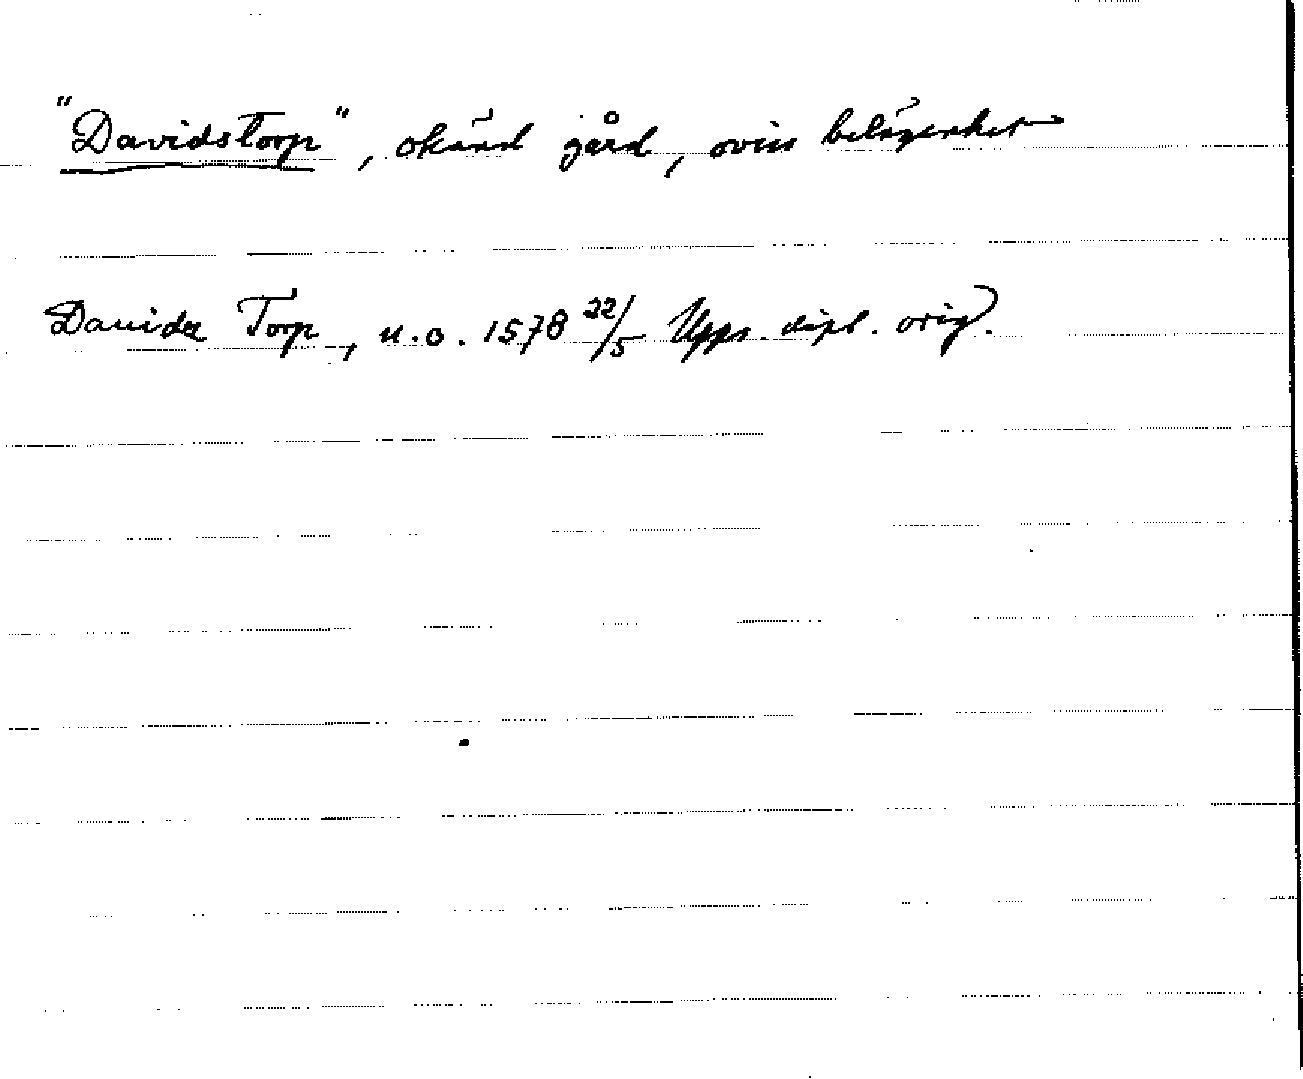 "Davidstorp", okänd gård, oviss belägenhet
Dauidz Torp, u.o. 1578 22/5 Upps. dipl. orig.